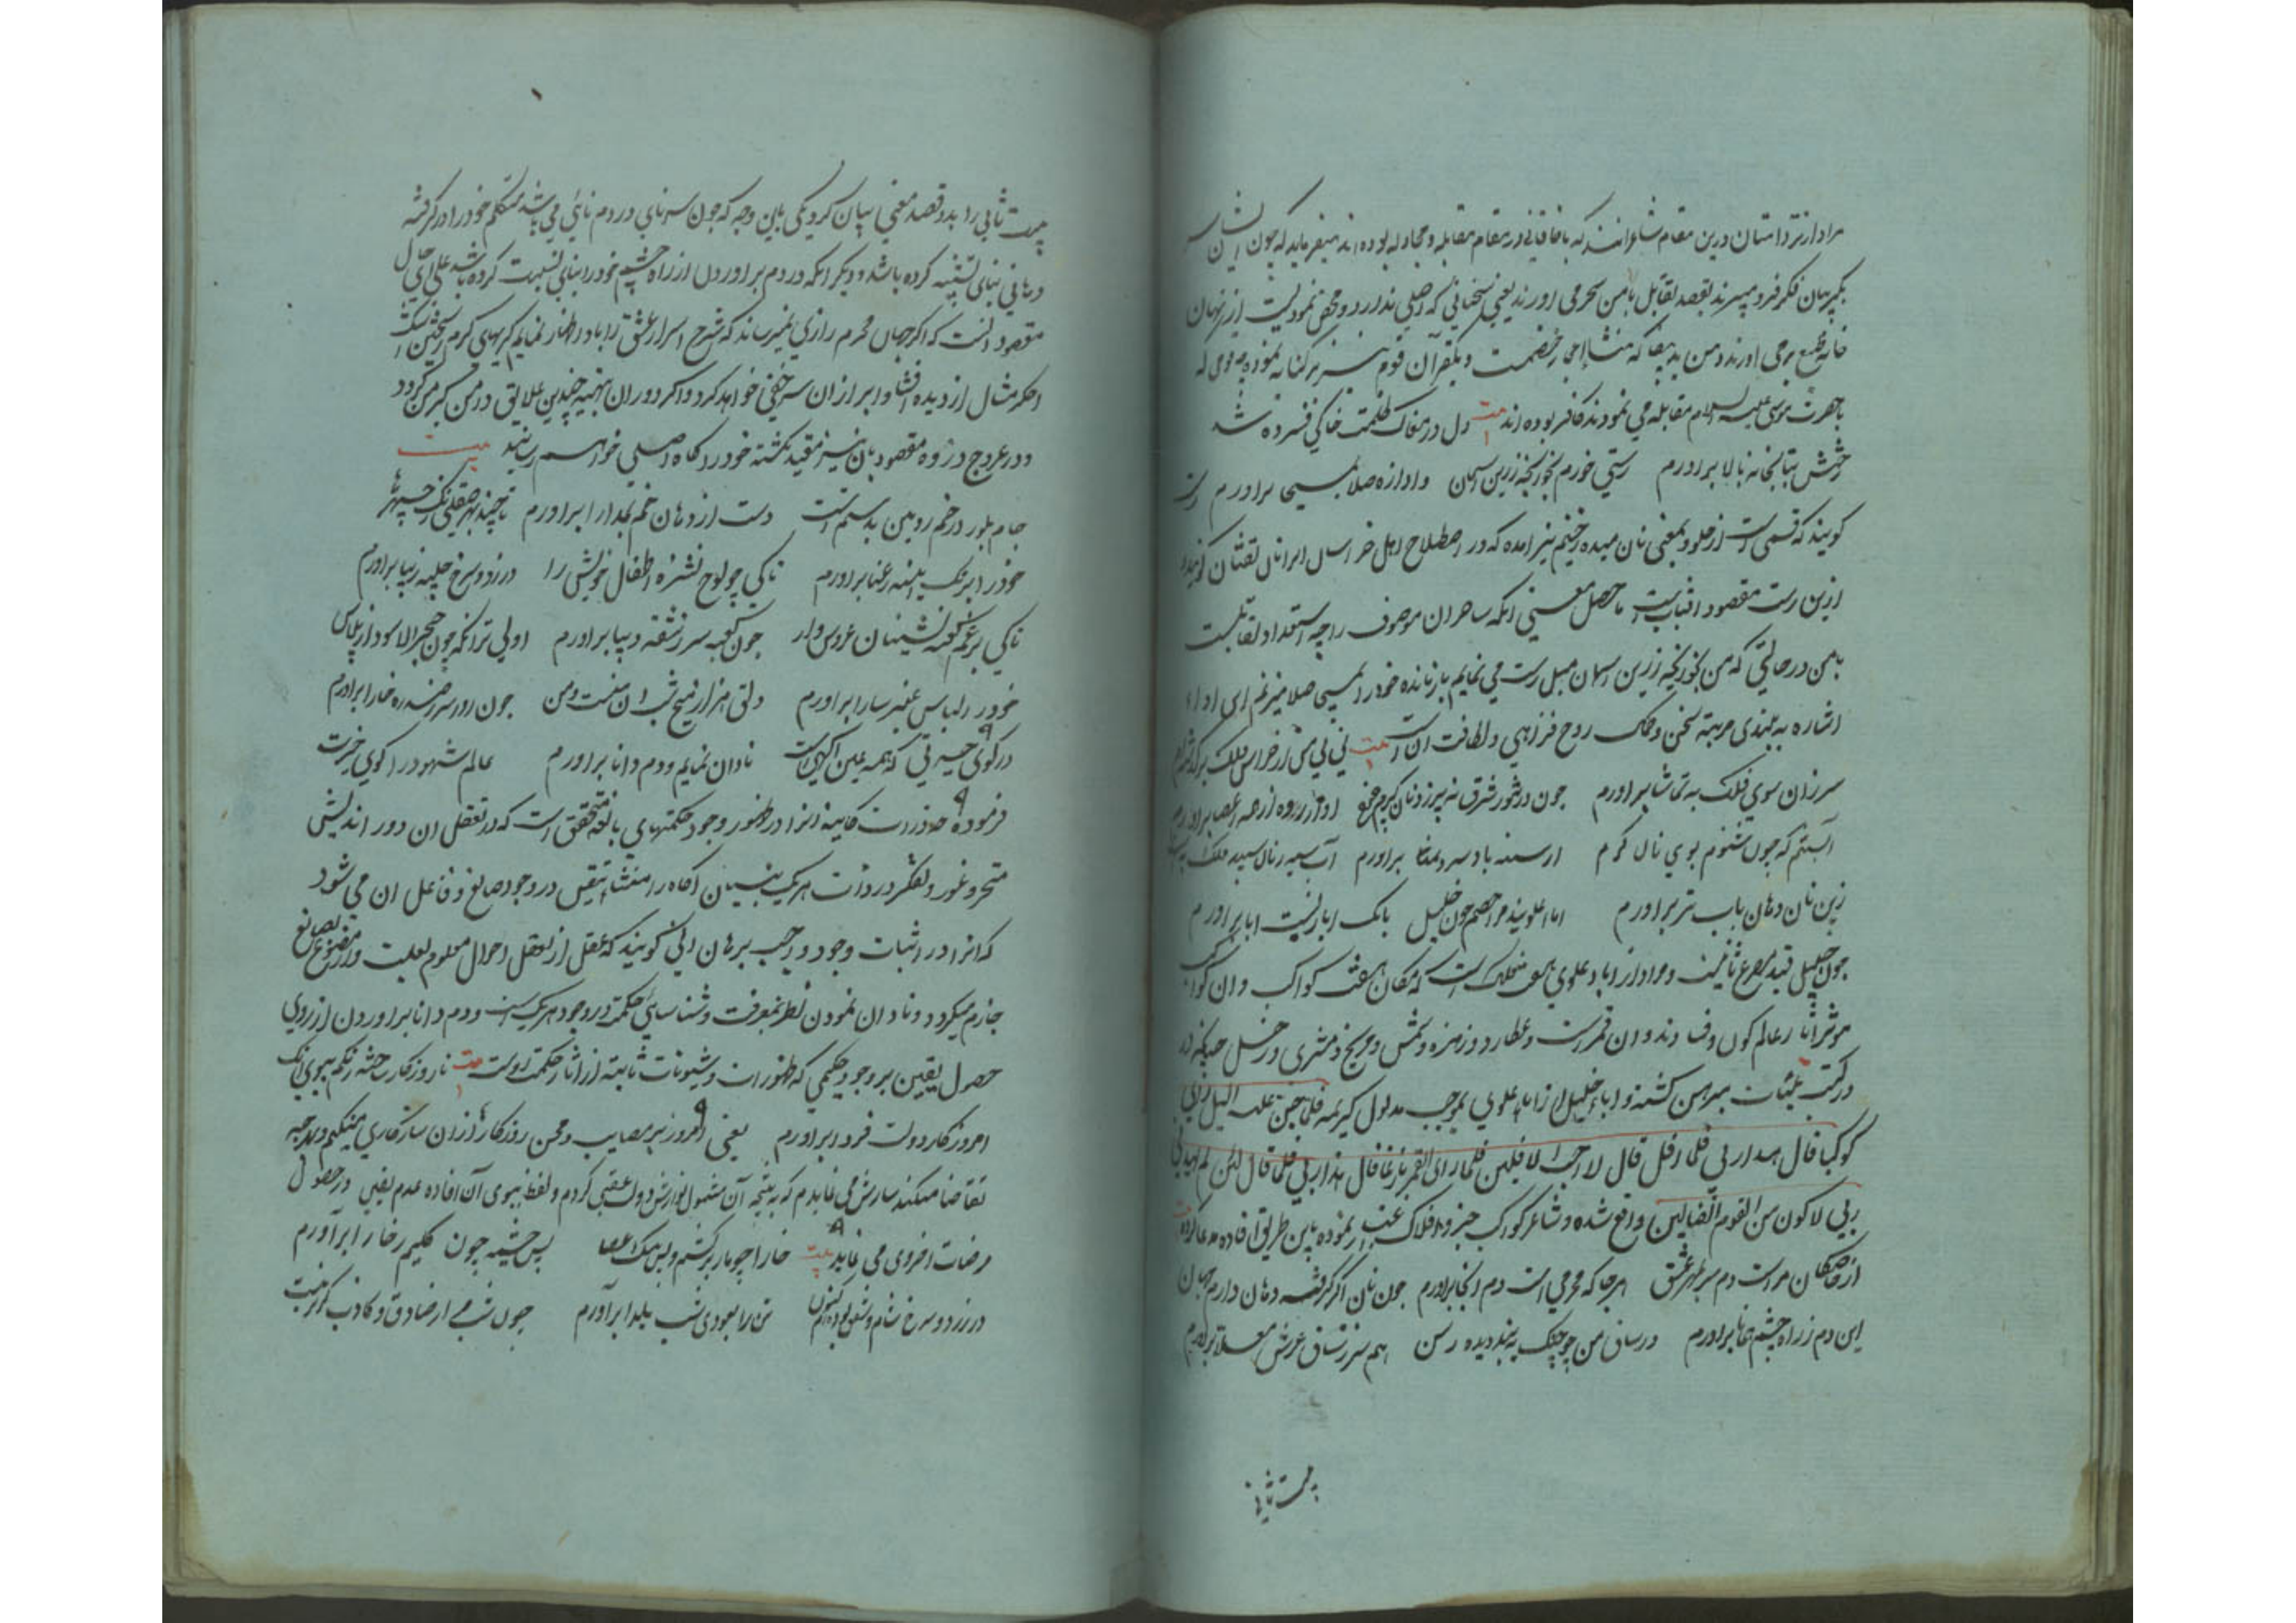 مراد از تر دامنان درین مقام شاعرانند که با خاقانی در مقام مقابله و مجادله بوده اند میفرماید که چون ایشان سر
بگریبان فکر فرو میبرند بقصد تقابل با من سحر می آورند یعنی سخنانی که اصلی ندارد و محض نمودیست از نهان
خانه طبع برمی آورند و من ید بیضا که منشا اعجاز خصمست و بکفر آن قوم نیز بر کنایه نموده چه قومی که
با حضرت موسی علیه السلام مقابله می نمودند کافر بوده اند بیت دل در مغاک ظلمت خاکی فسرده شد
رختش بتابخانه بالا برآورم رستی خورم بخوانچه زرین آسمان و آوازه صلا بمسیحا برآورم رست
گویند که قسمی است از حلوا و بمعنی نان میده ضخیم نیز آمده که در اصطلاح اهل خراسان ایرا نان تفتان گویند
ازین رست مقصود آفتابست ما حصل معنی آنکه ساحران موصوف را چه استعداد تقابلست
با من در حالتی که من بخوانچه زرین آسمان میل رست می نمایم باز مانده خود را بمسیح صلا میزنم ای ادا
اشاره به بلندی مرتبه سخن و محک روح فزاهی و لطافت آن است بیت نی نی من از خراس فلک برگذشته ام
سرزان سوی فلک به تماشا برآورم چون در تنور شرق پزد نان گرم چرخ آواز روزه از همه اعضا برآورم
آبستنم که چون شنوم بوی نان گرم از سینه باد سرد تمنا برآورم آب سیه ز نان سپید فلک به است
زین نان دهان بآب تبرا برآورم آبا علویند مرا خصم چون خلیل بانگ ابا ز نسبت آبا برآورم
چون خلیل قید مصرع ثانیست و مراد از آباء علوی هفت فلک است که مکان هفت کواکب و آن کواکب
موثر آثار عالم کون و فساد اند و آن قمر است و عطارد و زهره و شمس و مریخ و مشتری و زحل چنانکه در
در کتب مبرهن گشته و اباء خلیل از آباء علوی بموجب مدلول کریمه فلما جن علیه اللیل رای
کوکبا قال هذا ربی فلما افل قال لا احب الافلین فلما رای القمر بازغا قال هذا ربی فلما قال لئن لم یهدنی
ربی لاکون من القوم الضالین واقع شده و شاعر کواکب جزو افلاک اعتبار نموده باین طریق افاده مدعا کرده بیت
از خاصگان مراست دم سر بمهر عشق هر جا که محرمی است دم آنجا برآورم چون نای اگر گرفته دهان داردم جهان
این دم ز راه چشم همانا برآورم در ساق من چو چنگ به بندید ده رسن هم سر ز ساق عرش معلا برآورم
بیت ثانی
بیت ثانی را بدو قصد معنی بیان کرد یکی باین وجه که چون سر نای در دم نائی می باشد متکلم خود را در گرفته
دهانی بنای تشبیه کرده باشد و دیگر آنکه در دم برآوردن از راه چشم خود را بنای نسبت کرده باشد علی ای حال
مقصود آنست که اگر جهان محرم رازی نمیرساند که شرح اسرار عشق را باو اظهار نمایم گریهای گرم سختن اشک
اخگر مثال از دیده افشا و ابراز آن سر خفی خواهد کرد و اگر دوران بتهیه چندین علایق در من گیرد
و در عروج ذروه مقصود بآن نیز مقید نگشته خود را بگاه اصلی خواهم رسانید بیت
جام بلور در خم رویین بدستم است دست از دهان خم بمدارا برآورم تا چند بهر صیقلی رنگ چهرها
خود را برنگ آینه رعنا برآورم تا کی چو لوح نشره اطفال خویش را در زرد و سرخ حلیه زیبا برآورم
تا کی برغم کعبه نشینان عروس وار چون کعبه سر ز شقه دیبا برآورم اولی تر آنکه چون حجر الاسود از پلاس
خود را لباس عنبر سارا برآورم دلق هزار میخ شب آن منست و من چون روز سر ز صدره خارا برآورم
در کوی حیرتی که همه عین آگهی است نادان نمایم و دم دانا برآورم عالم شهود را کوی حیرت
فرموده چه ذرات کاینه آنرا در ظهور وجود حکمتهای بالغه متحقق است که در تعقل آن دور اندیش
متحیر و غور و تفکر در ذات هر یک بینیسان آگاه را منشاء تیقن در وجود صانع و فاعل آن می شود
که آنرا در اثبات وجود واجب برهان انی گویند که عقل از تعقل احوال معلوم بعلت و از مصنوع بصانع
جازم میگردد و نادان نمودن نظر بمعرفت و شناسائی حکمت در وجود هر یک است و دم دانا برآوردن از روی
حصول یقین بر وجود حکمی که ظهورات و شیونات ثابته از آثار حکمت اوست بیت تا روزگار حشر زنم ببوی آنک
امروز کار دولت فردا برآورم یعنی امروز بر مصایب و محن روزگار از آن سازگاری میکنم و بهرچه
تقاضا میکند سازش می نمایم که به نتیجه آن مشمول نوازش دولت عقبی گردم و لفظ ببوی آن افاده عدم یقین در حصول
مرضات اخروی می نماید بیت خارا چو مار برکشم و پس بیک عصا پس چشمه چون کلیم ز خارا برآورم
در زرد و سرخ شام و شفق بوده ام کنون تن را بعودی شب یلدا برآورم چون شب مرا ز صادق و کاذب گزیر نیست